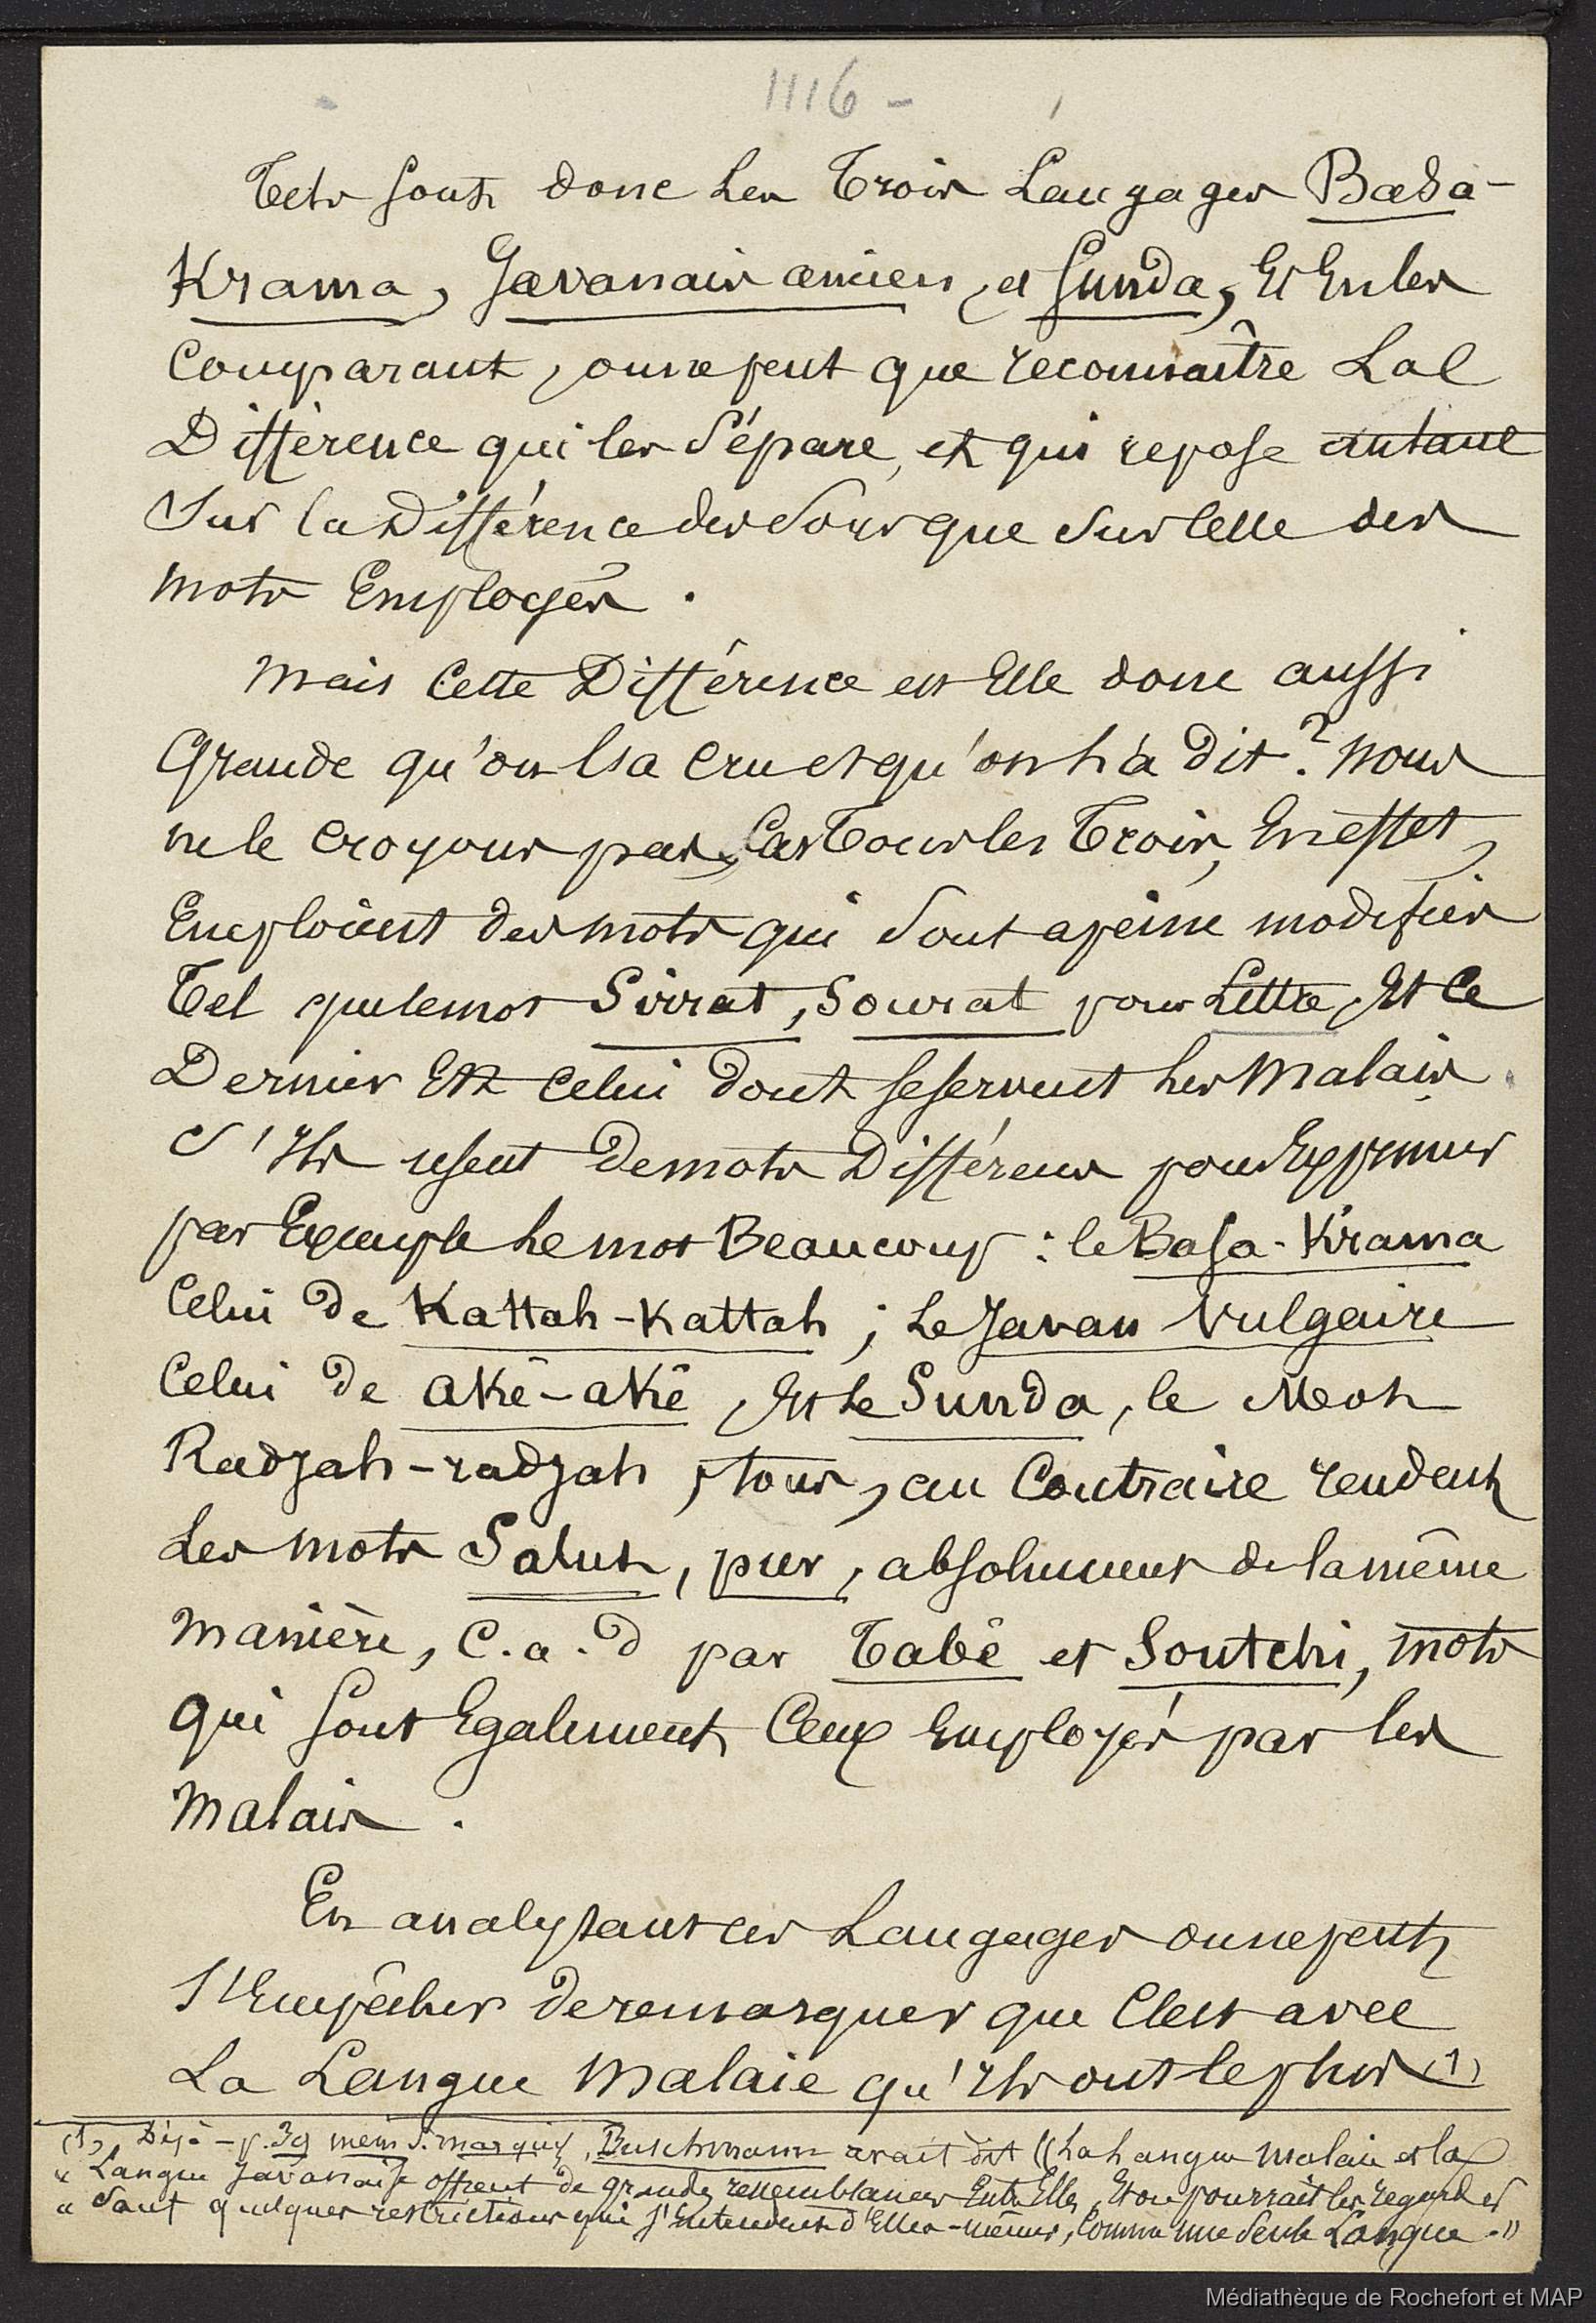 1116 -
Tels sont donc les Trois Langages Basa-
Krama, Javanais ancien, et Sunda, Et En les
Comparant, on ne peut que reconnaître La
Différence qui les Sépare, et qui repose autant
Sur la Différence des Sons que Sur Celle des
mots Employés.
Mais Cette Différence est Elle donc aussi
Grande qu'on l'a Cru et qu'on l'a Dit? Nous
ne le Croyons pas, Car Tous les Trois, En effet,
Emploient des mots qui Sont a peine modifiés
Tel que le mot Sirrat, Sourat pour Lettre, Et Ce
Dernier Est Celui dont se servent les Malais
S'Ils usent De mots Différens pour Exprimer
par Exemple Le mot Beaucoup : le Basa-Krama
Celui De Kattah-Kattah ; Le Javan Vulgaire
Celui De Akê-akê, Et Le Sunda, le Mot
Radjah-radjah, tous, au Contraire rendent
Les mots Salut, pur, absolument de la même
Manière, C.a.d par Tabê et Soutchi, mots
qui sont Egalement Ceux Employés par les
Malais.
En analysant ces Langages on ne peut
S'Empêcher De remarquer que C'est avec
La Langue Malaie qu'Ils ont le plus (1)
(1) Déjà - p. 39 mém S. Marquis, Buschmann avait dit "La Langue Malaie et la
" Langue Javanaise offrent de grandes ressemblances Entr'Elles, Et on pourrait les regarder
" Sauf quelques restrictions qui s'Entendent d'Elles-mêmes, Comme une Seule Langue."
Médiathèque de Rochefort et MAP